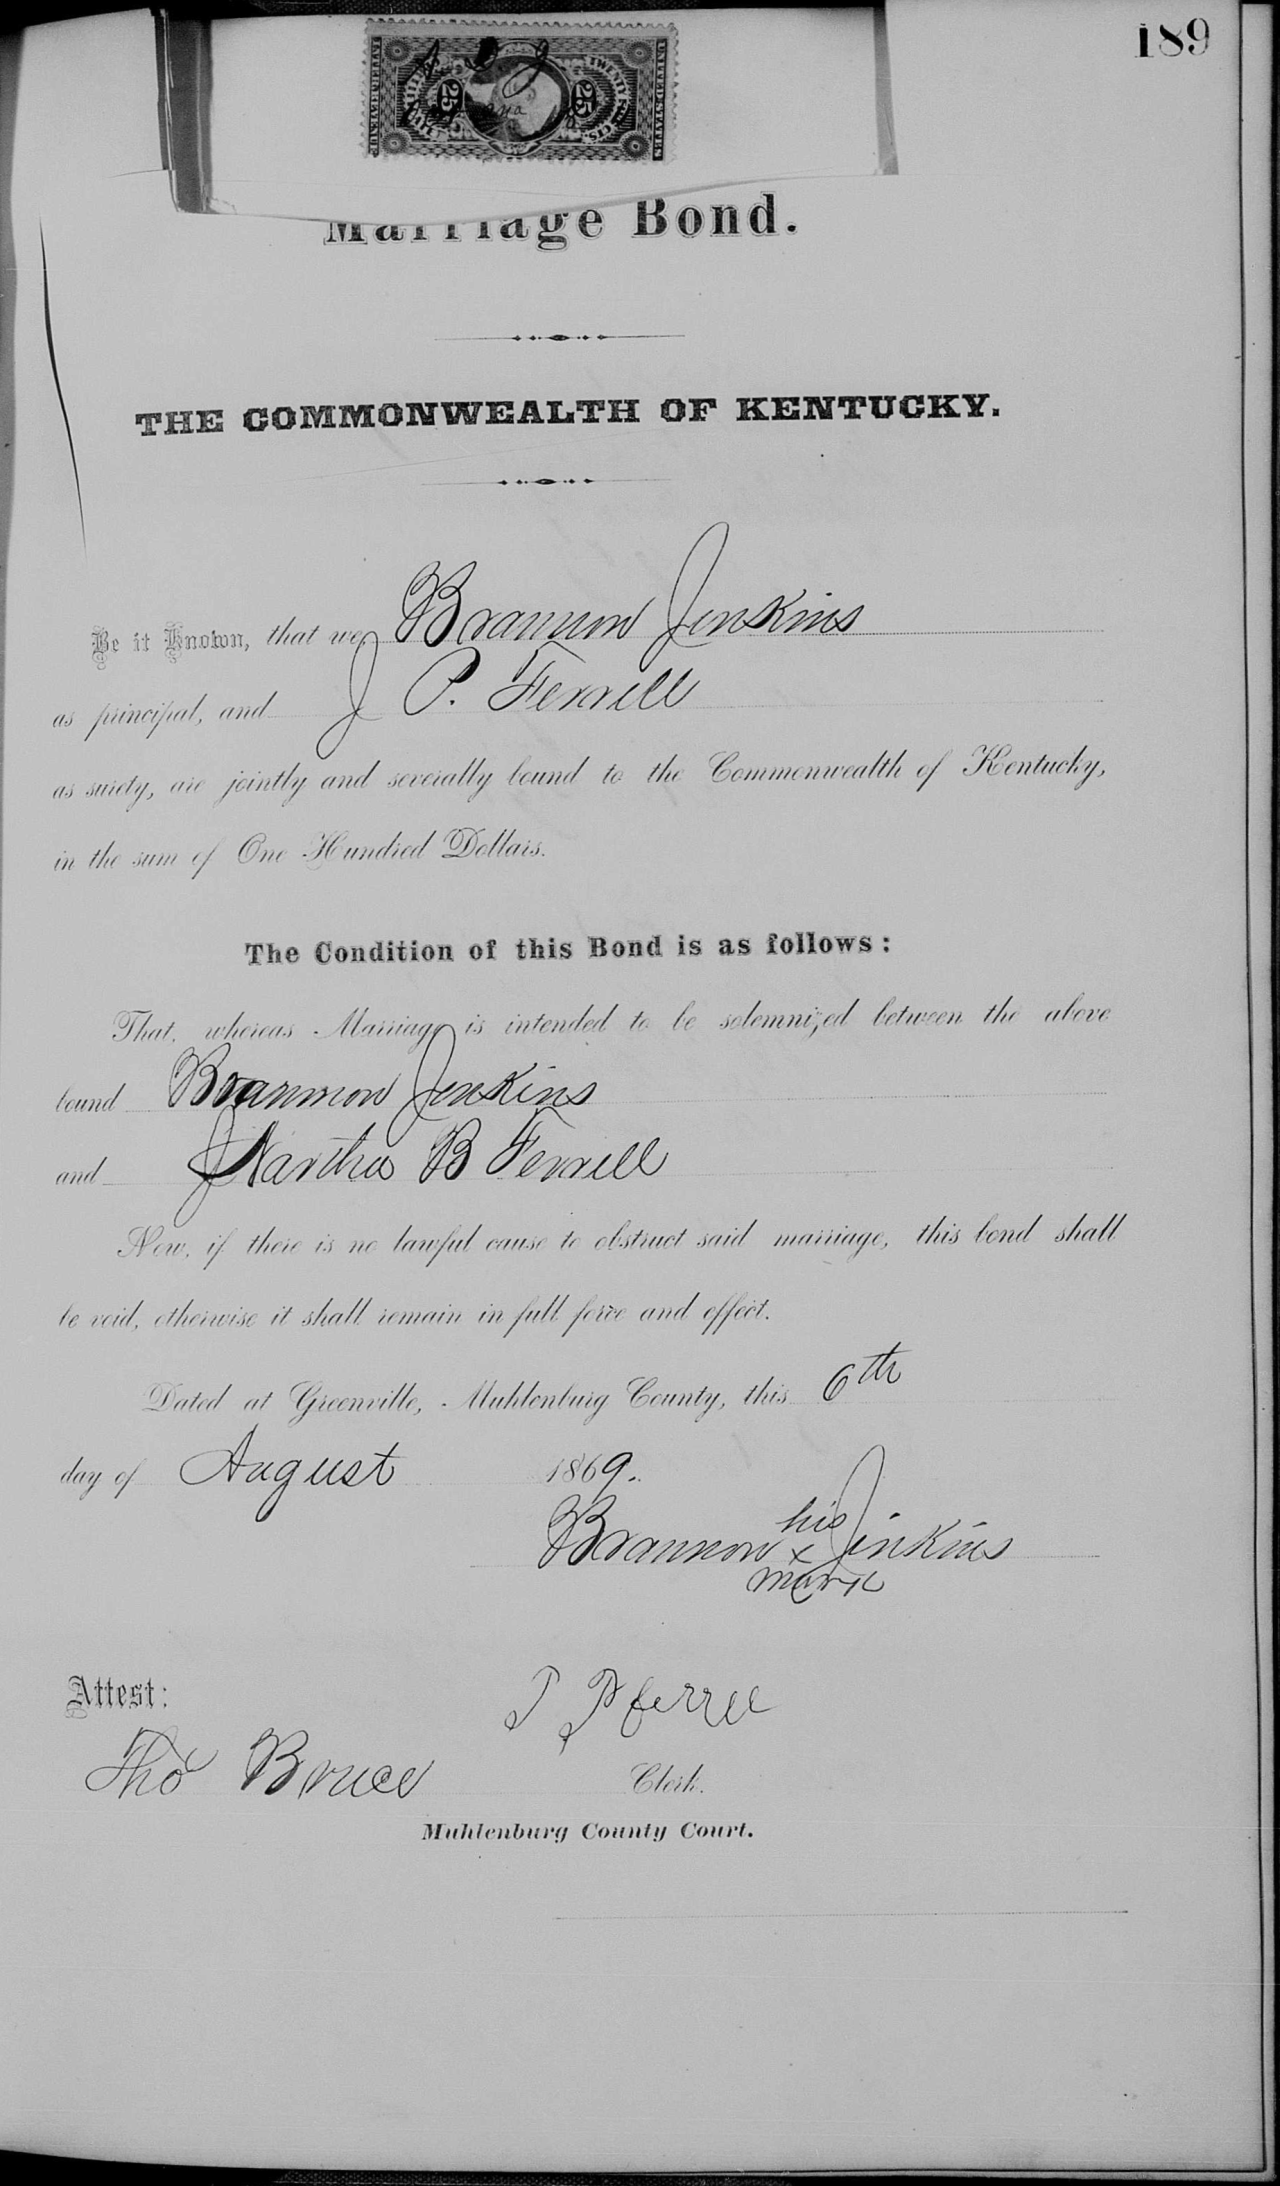 189
UNITED STATES
25 25
TWENTY FIVE CTS.
Marriage Bond.
THE COMMONWEALTH OF KENTUCKY.
Be it Known, that we Brannon Jenkins
as principal, and J P. Ferrell
as surety, are jointly and severally bound to the Commonwealth of Kentucky,
in the sum of One Hundred Dollars.
The Condition of this Bond is as follows:
That, whereas Marriage is intended to be solemnized between the above
bound Brannon Jenkins
and Martha B Ferrell
Now, if there is no lawful cause to obstruct said marriage, this bond shall
be void, otherwise it shall remain in full force and effect.
Dated at Greenville, Muhlenburg County, this 6th
day of August 1869.
his
Brannon x Jinkins
mark
Attest: J P ferrell
Tho Bruce Clerk.
Muhlenburg County Court.